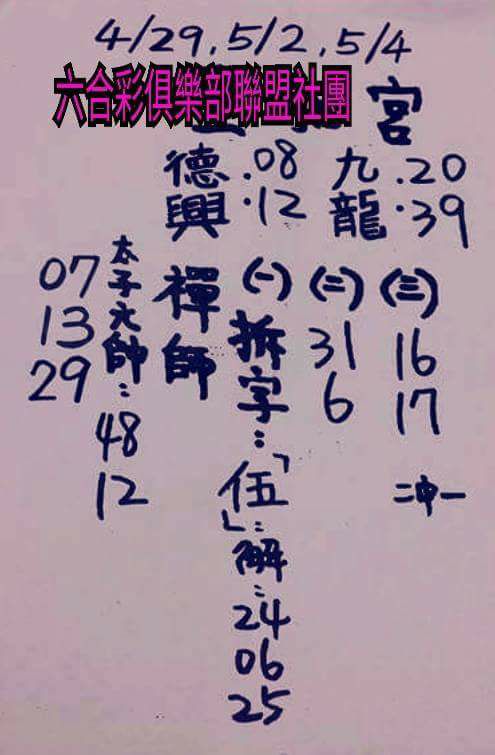 4/29.5/2.5/4
六合彩俱樂部聯盟社團
宮
德興 .08 .12
九龍 .20 .39
太子元帥：48 12
07
13
29
禪師
(一)拆字：「伍」：解：24 06 25
(二) 31 6
(三) 16 17
二中一